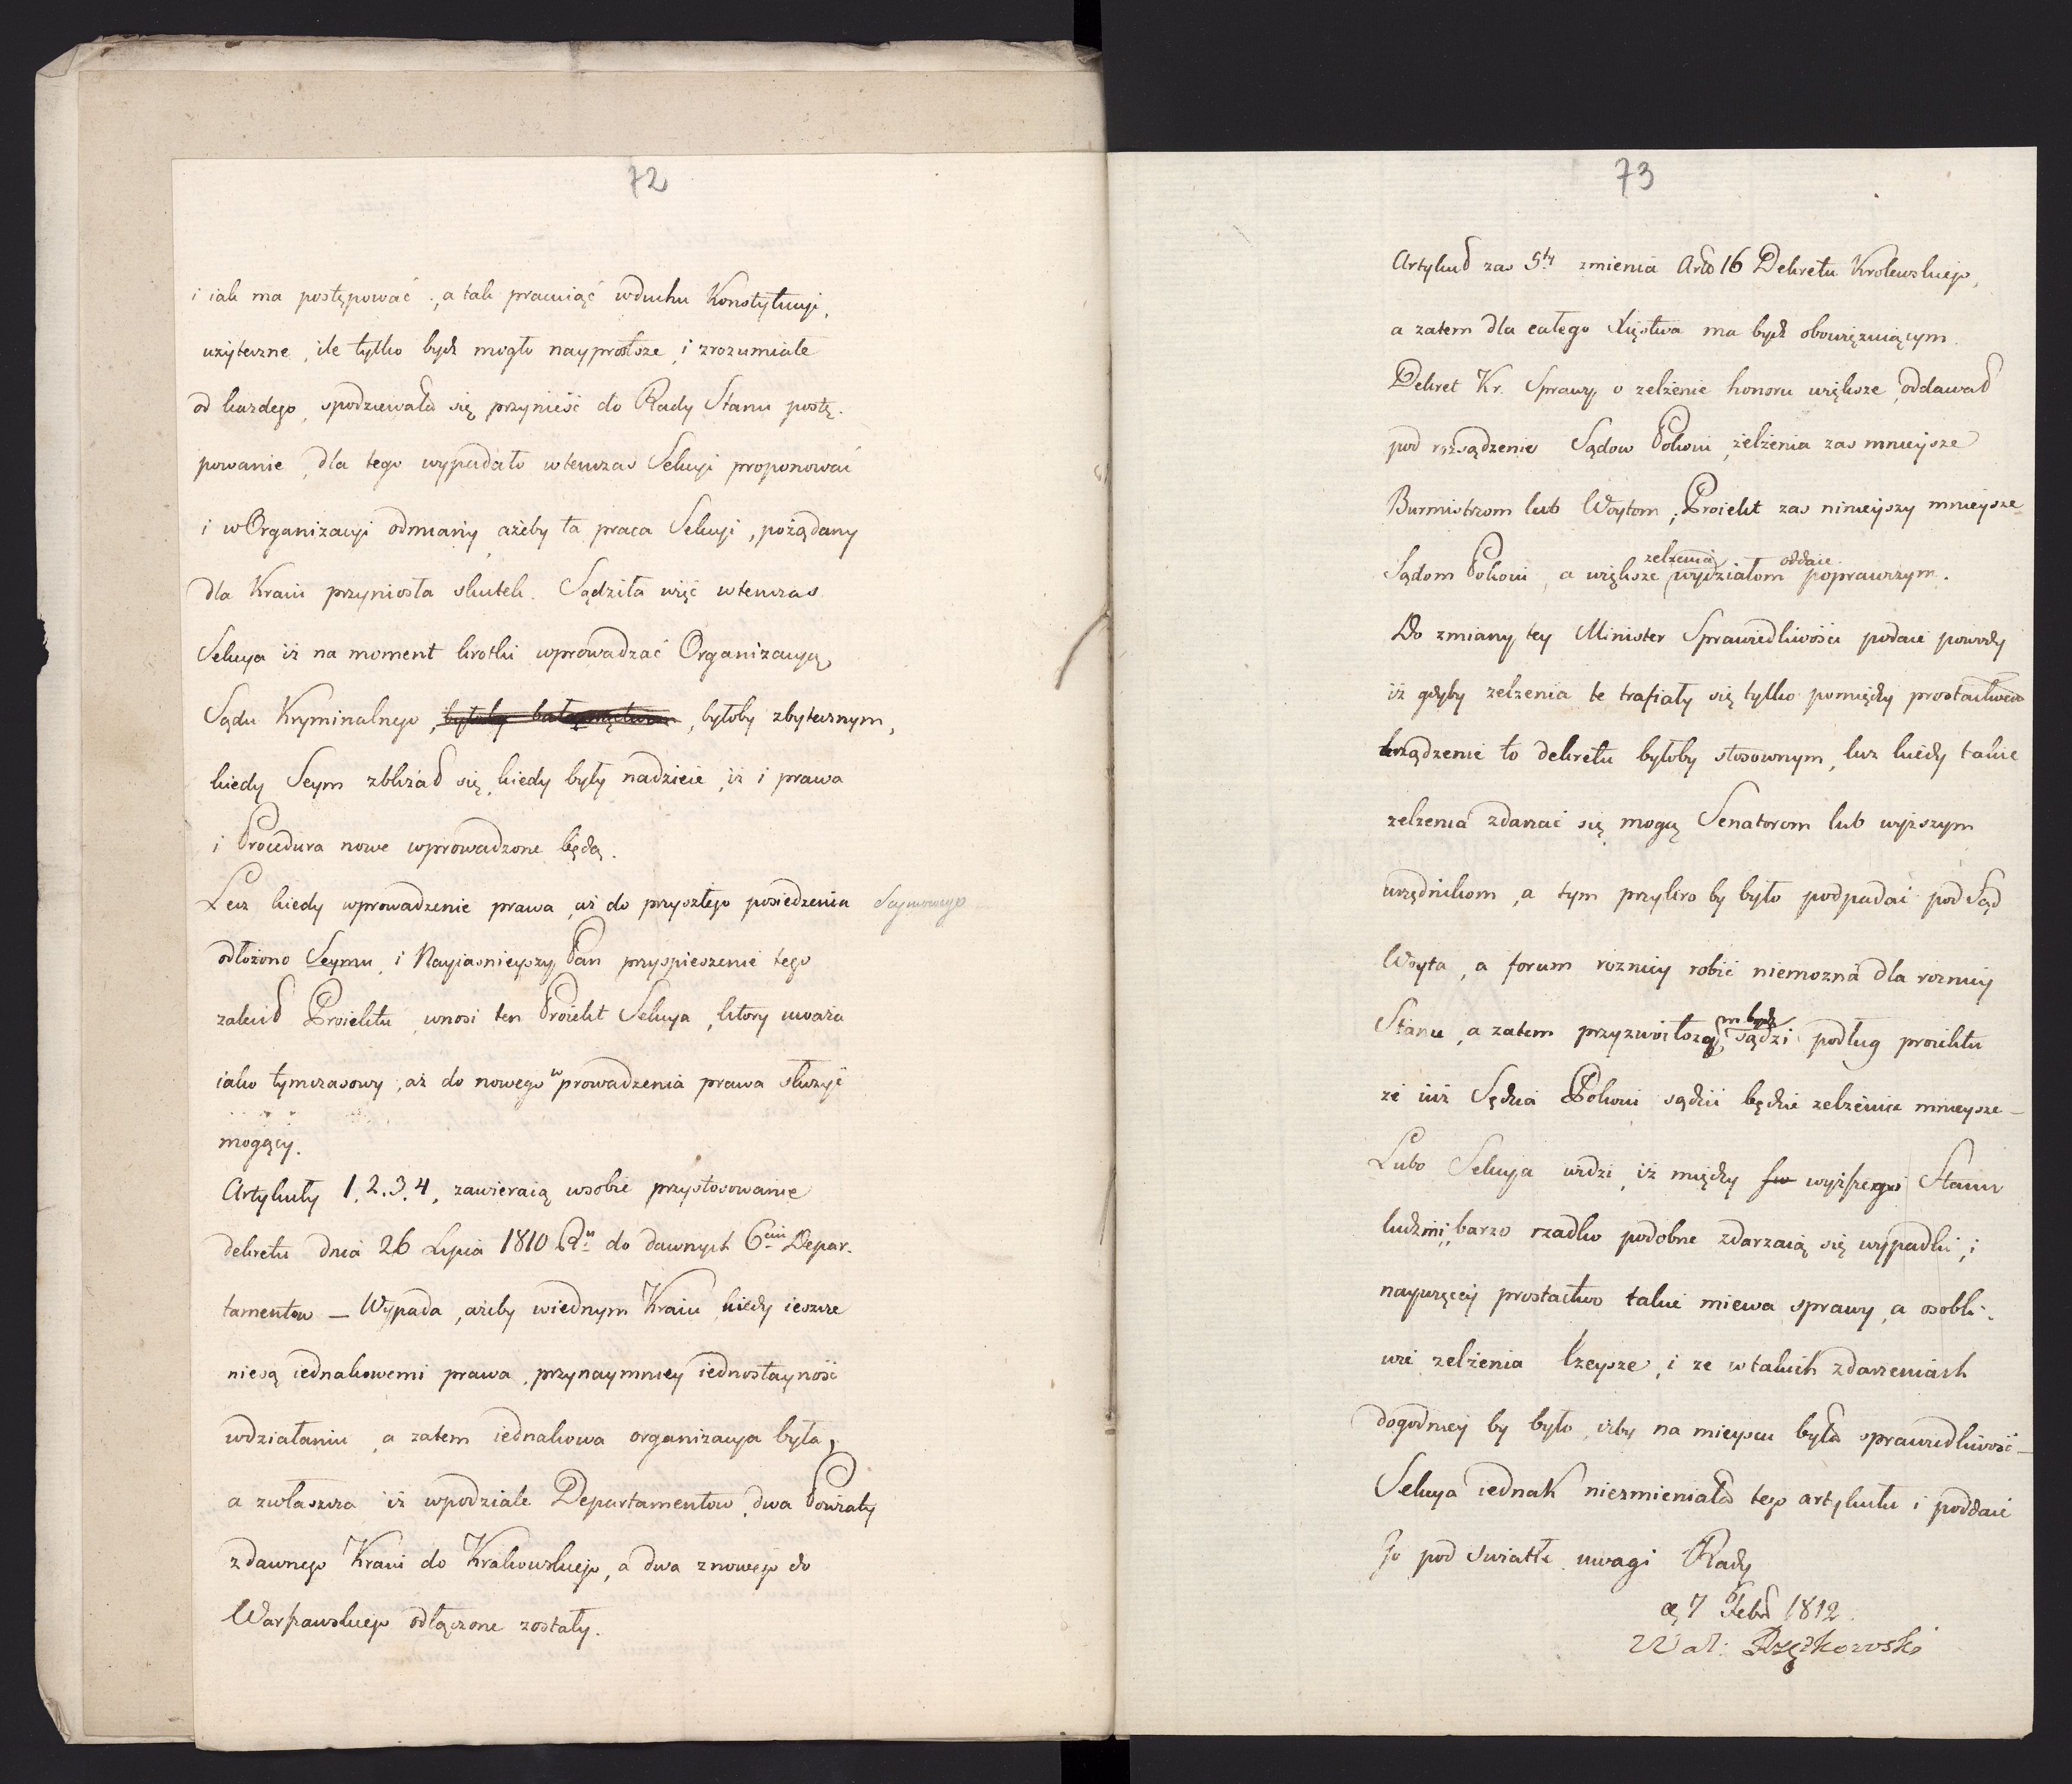 72
i iak ma postępować, a tak pracuiąć w duchu Konstytucyi,
użyteczne, ile tylko bydź mogło nayprostsze i zrozumiałe
od każdego, spodziewała się przynieść do Rady Stanu postę-
powanie, dla tego wypadało wtenczas Sekcyi proponować
i w Organizacyi odmiany, ażeby ta praca Sekcyi, pożądany
dla Kraiu przyniosła skutek. Sądziła więc wtenczas
Sekcya iż na moment krotki wprowadzać Organizacyą
Sądu Kryminalnego, byłoby zbytecznym,
kiedy Seym zbliżał się, kiedy były nadzieie, iż i prawa
i Procedura nowe wprowadzone będą.
Lecz kiedy wprowadzenie prawa, aż do przyszłego posiedzenia Seymowego
odłożono Seymu, i Nayiasnieyszy Pan przyspieszenie tego
zalecił Proiektu, wnosi ten Proiekt Sekcya, ktory uważa
iako tymczasowy, aż do nowego wprowadzenia prawa służyć
mogący.
Artykuły 1.2.3.4. zawieraią w sobie przystosowanie
dekretu dnia 26 Lipca 1810 Ru do dawnych 6ciu Depar-
tamentow — Wypada, ażeby w iednym Kraiu kiedy ieszcze
niesą iednakowemi prawa, przynaymniey iednostayność
w działaniu, a zatem iednakowa organizacya była,
a zwłaszcza iż w podziale Departamentow, dwa Powiaty
z dawnego Kraiu do Krakowskiego, a dwa z nowego do
Warszawskiego odłączone zostały.
73
Artykuł zas 5ty zmienia Art 16 Dekretu Krolewskiego,
a zatem dla całego Xięstwa ma bydź obowięzuiącym.
Dekret Kr. Sprawy o zelżenie honoru większe, oddawał
pod rozsądzenie Sądow Pokoiu, żelżenia zas mnieysze
Burmistrzom lub Woytom, Proiekt zas ninieyszy mnieysze
Sądom Pokoiu, a większe zelżenia wydziałom oddaie poprawczym.
Do zmiany tey Minister Sprawiedliwości podaie powody
iż gdyby zelzenia te trafiały się tylko pomiędzy prostactwem
urządzenie to dekretu byłoby stosownym, lecz kiedy takie
zelzenia zdarzać się mogą Senatorom lub wyższym
urzędnikom, a tym przykro by było podpadać pod Sąd
Woyta, a forum roznicy robić niemozna dla roznicy
Stanu, a zatem przyzwoitszą m bydź sądzi podług proiektu
że iuż Sędzia Pokoiu sądzić będzie zelżenia mnieysze —
Lubo Sekcya widzi, iż między wyższego Stanu
ludzmi, barzo rzadko podobne zdarzaią się wypadki, i
naywięcey prostactwo takie miewa sprawy, a osobli-
wie zelżenia lzeysze, i ze w takich zdarzeniach
dogodniey by było, iżby na mieyscu była sprawiedliwość —
Sekcya iednak niezmieniała tego artykułu i poddaie
go pod swiatłe uwagi Rady
7 Febr 1812.
Wal: Rzętkowski